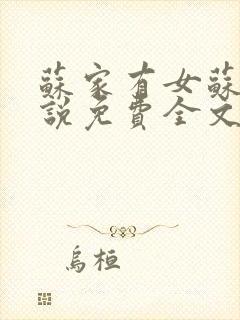 蘇家有女蘇
說免費全文
烏桓